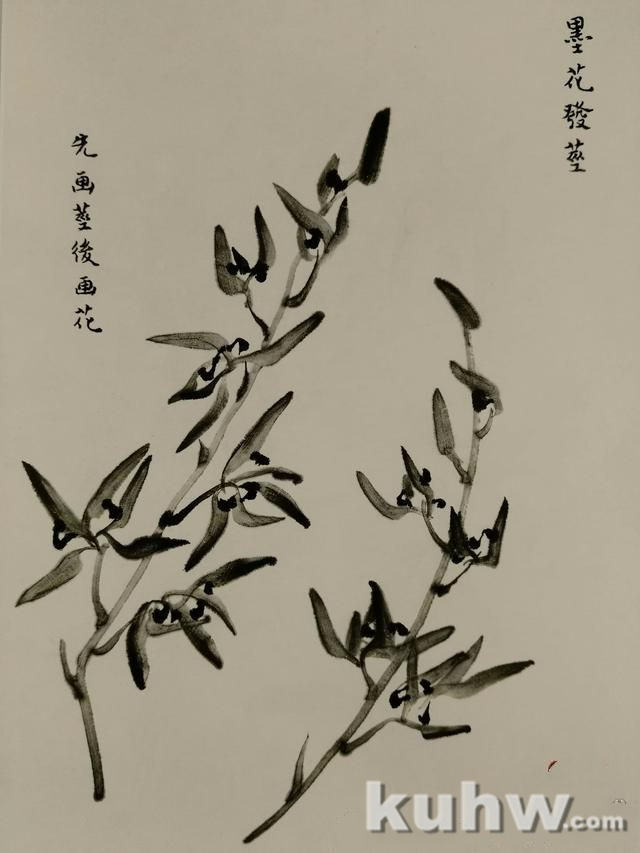 墨花發莖
先画莖後画花
kuhw.com